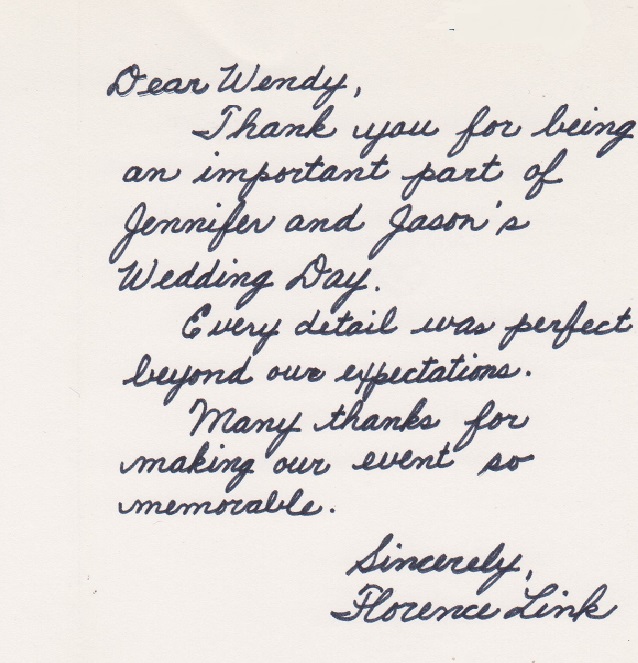 Dear Wendy,
Thank you for being
an important part of
Jennifer and Jason's
Wedding Day.
Every detail was perfect
beyond our expectations.
Many thanks for
making our event so
memorable.
Sincerely,
Florence Link